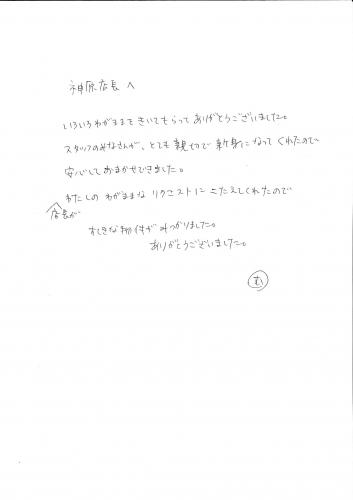 神原店長へ
いろいろわがままをきいてもらってありがとうございました。
スタッフのみなさんが、とても親切で親身になってくれたので
安心しておまかせできました。
わたしのわがままなリクエストにこたえてくれたので
店長が
すてきな物件がみつかりました。
ありがとうございました。
む